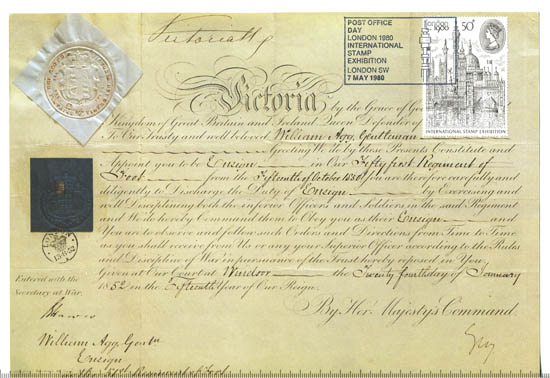 Victoria R
POST OFFICE
DAY
LONDON 1980
INTERNATIONAL
STAMP
EXHIBITION
LONDON SW
7 MAY 1980
London
1980
50p
INTERNATIONAL STAMP EXHIBITION
Victoria by the Grace of God
Kingdom of Great Britain and Ireland, Queen, Defender of
To Our Trusty and well beloved William Agg Gentleman
Greeting We by these Presents Constitute and
Appoint you to be Ensign in Our Fifty first Regiment of
Foot from the Fifteenth of October 1850 You are therefore carefully and
diligently to Discharge the Duty of Ensign by Exercising and
well Disciplining both the inferior Officers and Soldiers in the said Regiment
and We do hereby Command them to Obey you as their Ensign and
You are to observe and follow such Orders and Directions from Time to Time
as you shall receive from Us or any your Superior Officer according to the Rules
and Discipline of War in pursuance of the Trust hereby reposed in You
Given at Our Court at Windsor the Twenty fourth day of January
1852 in the Fifteenth Year of Our Reign.
Entered with the
Secretary at War.
By Her Majesty's Command.
William Agg Gentn
Ensign
in the 51st Regiment of Foot